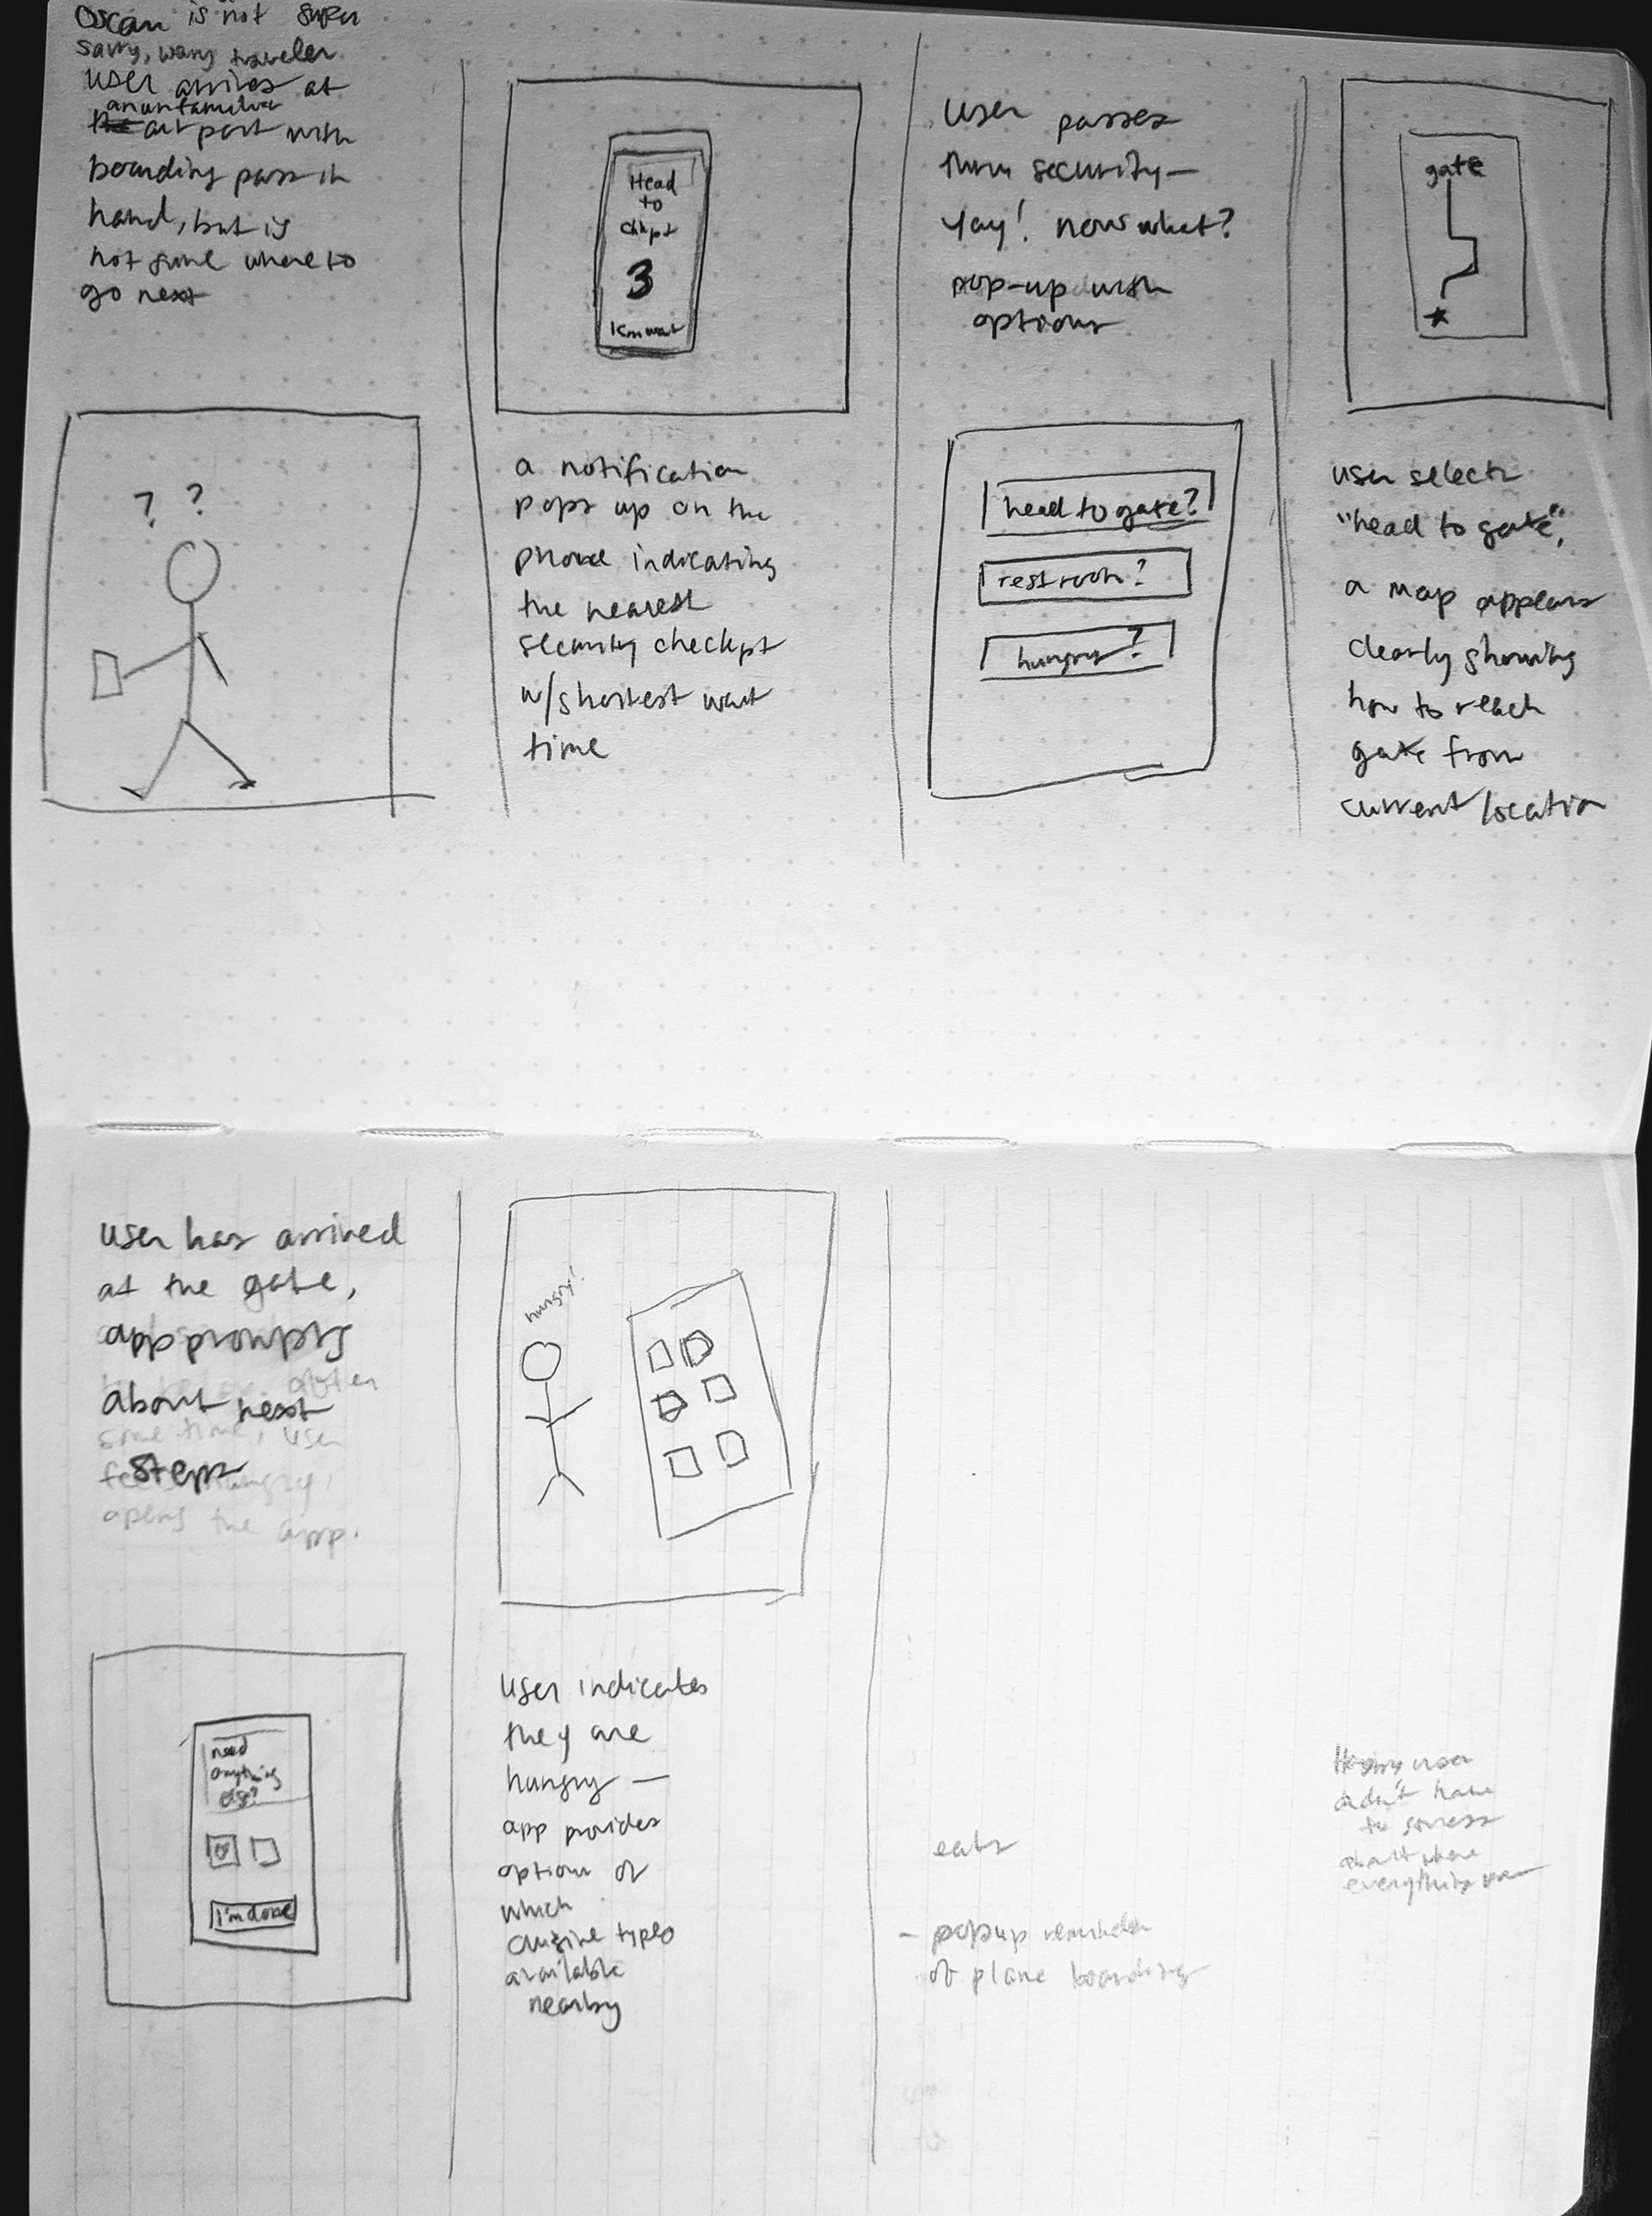 Oscar is not super
savvy, wary traveler
user arrives at
an unfamiliar
the airport with
boarding pass in
hand, but is
not sure where to
go next
? ?
Head
to
chkpt
3
wait
a notification
pops up on the
phone indicating
the nearest
security checkpt
w/shortest wait
time
user passes
thru security—
Yay! now what?
pop-up with
options
head to gate?
restroom?
hungry?
gate
user selects
"head to gate",
a map appears
clearly showing
how to reach
gate from
current location
user has arrived
at the gate,
app prompts
about next
steps
after
some time, user
feels hungry,
opens the app.
need
anything
else?
I'm done
hungry!
user indicates
they are
hungry —
app provides
options of
which
cuisine types
available
nearby
eats
- popup reminder
of plane boarding
user
didn't have
to stress
about where
everything was